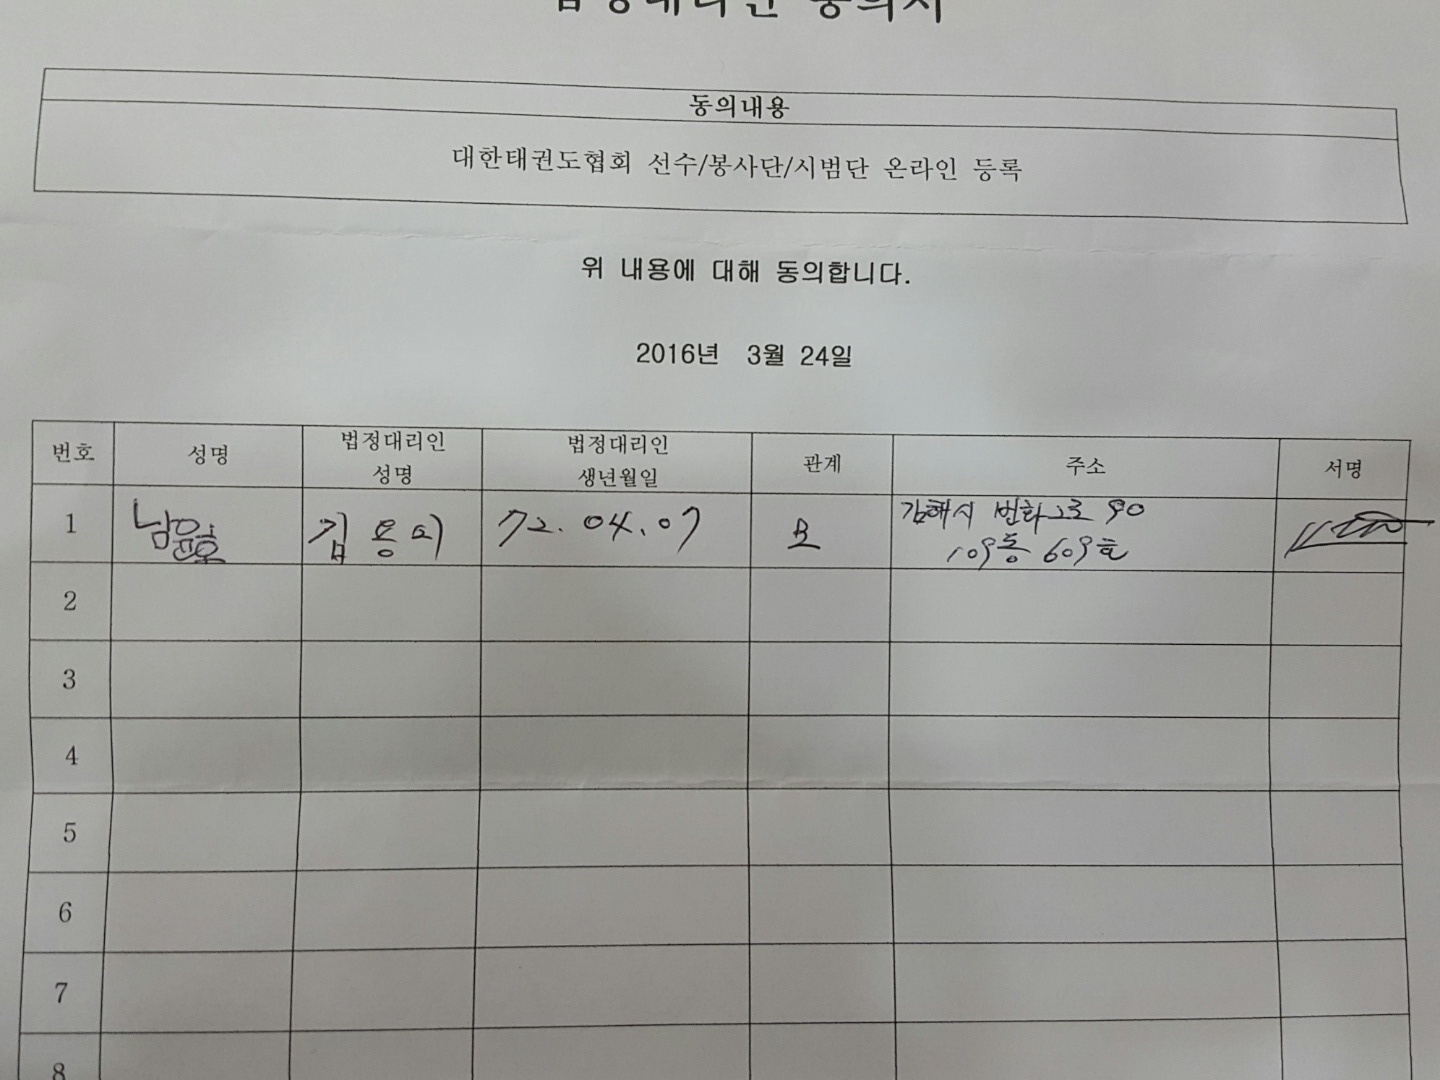 법정대리인 동의서
동의내용
대한태권도협회 선수/봉사단/시범단 온라인 등록
위 내용에 대해 동의합니다.
2016년 3월 24일
번호 성명 법정대리인 성명 법정대리인 생년월일 관계 주소 서명
1 남윤호 김용희 72.04.07 모 김해시 번화1로 90
109동 609호
2
3
4
5
6
7
8